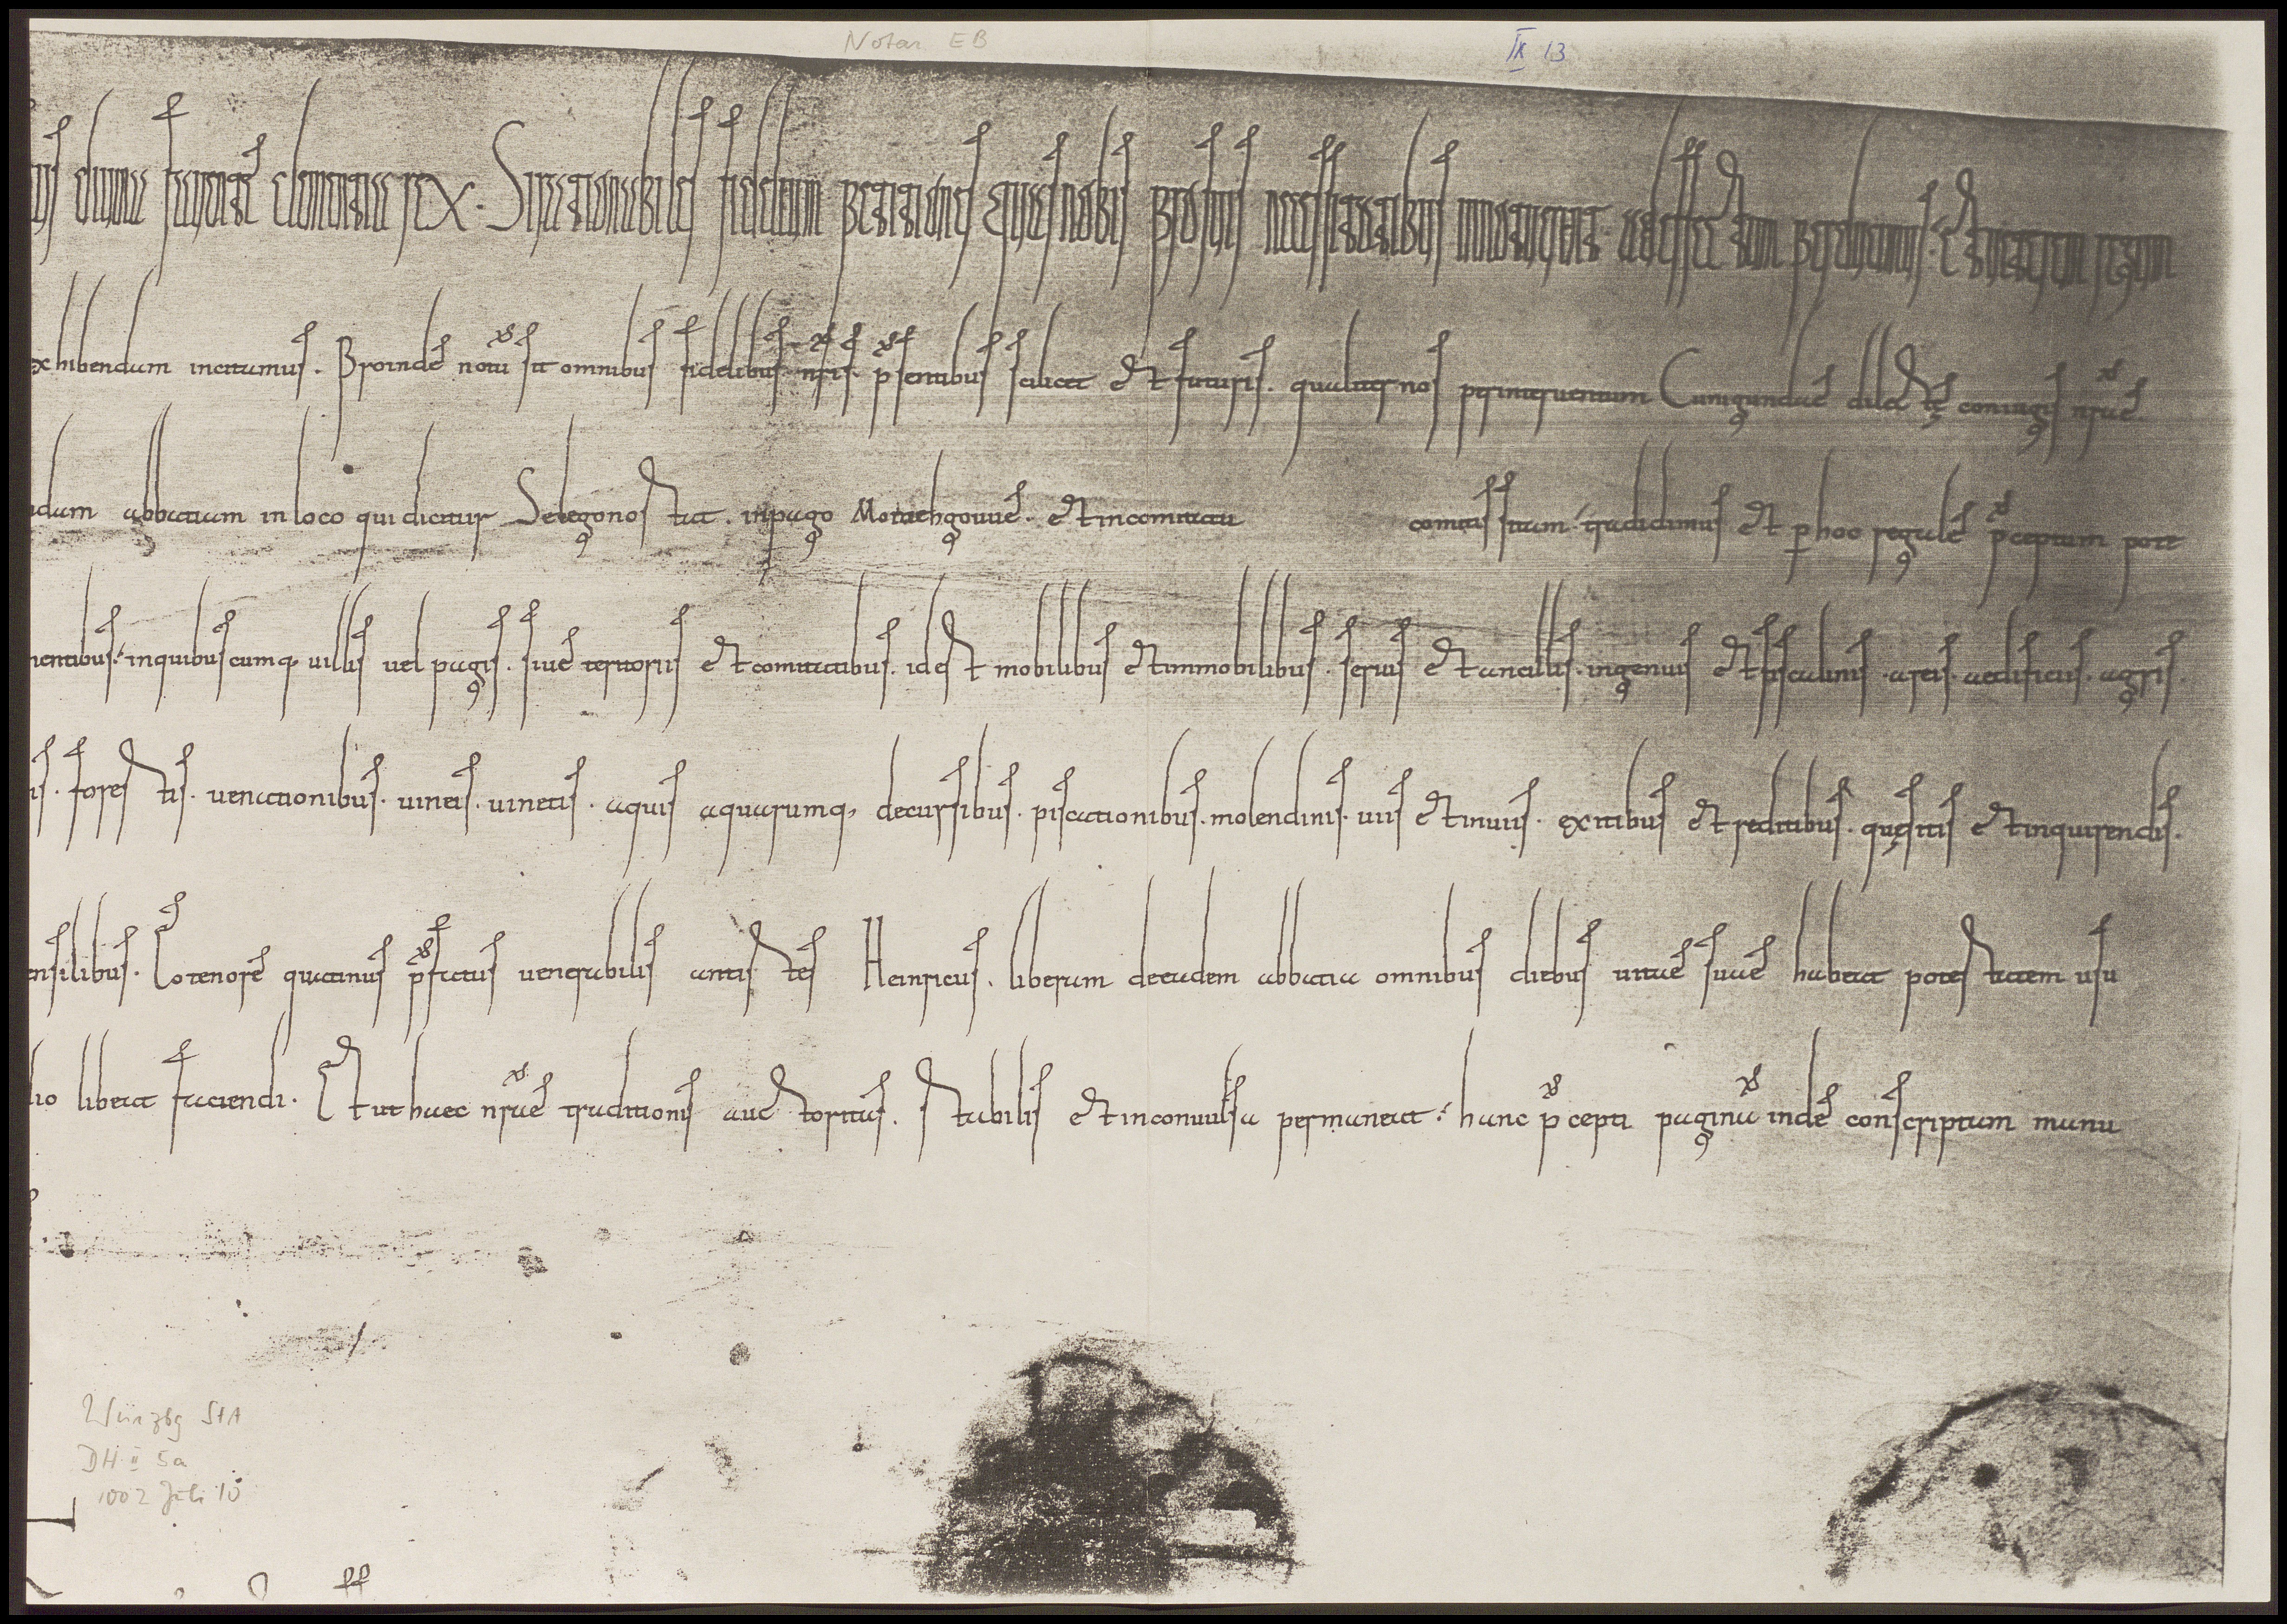 Notar EB
IX 13
diuina fauente clementia rex. Si rationabiles fidelium petitiones quas nobis pro suis necessitatibus ad effectum perducimus. Et
exhibendum incitamus. Proinde notū sit omnibus fidelibus nr̄is. p̄sentibus scilicet et futuris. qualiter nos per interuentum Cunigundae dilectę coniugis nr̄ae
abbatiam in loco qui dicitur Selegonostat. in pago Moinehgouue. et in comitatu comitis sitam. tradidimus et p hoc regale p̄ceptum pote
nentibus. in quibuscumq; uillis uel pagis. siue territoriis et comitatibus. id est mobilibus et immobilibus. seruis et ancillis. ingenuis et fiscalinis. areis. aedificiis. agris.
is. forestis. uenationibus. uineis. uinetis. aquis aquarumq; decursibus. piscationibus. molendinis. uiis et inuiis. exitibus et reditibus. quęsitis et inquirendis.
ensilibus. Eo tenore quatinus p̄fatus uenerabilis antistes Heinricus. liberam de eadem abbatia omnibus diebus uitae suae habeat potestatem usu
libeat faciendi. Et ut haec nr̄ae traditionis auctoritas. stabilis et inconuulsa permaneat. hanc p̄cepti paginā inde conscriptam manu
Würzbg StA
DH II 5a
1002 Juli 10